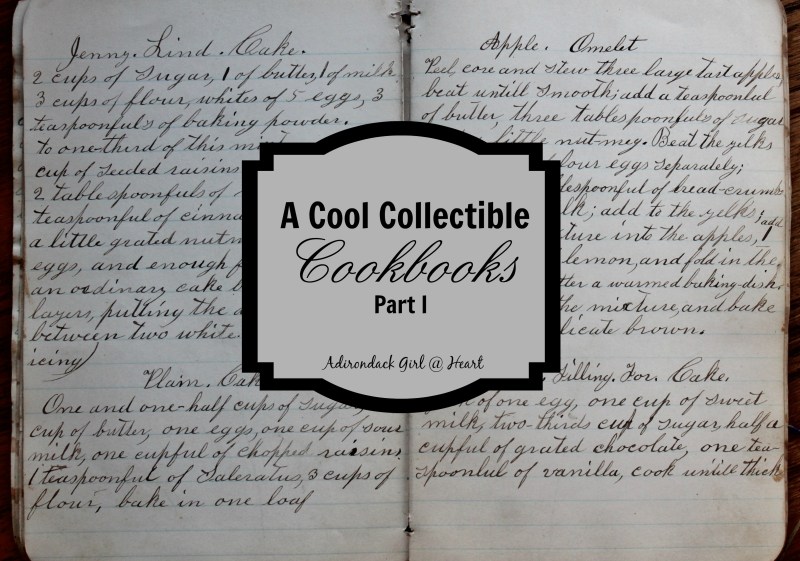 Jenny. Lind. Cake.
2 cups of Sugar, 1 of butter, 1 of milk,
3 cups of flour, whites of 5 eggs, 3
teaspoonfuls of baking powder.
to one-third of this
cup of seeded raisins
2 tablespoonfuls of
teaspoonful of
a little grated
eggs, and enough
an ordinary cake
layers, putting the
between two white
icing)
Plain.
One and one-half cups of sugar,
cup of butter, one eggs, one cup of sour
milk, one cupful of chopped raisins
1 teaspoonful of Saleratus, 3 cups of
flour, bake in one loaf
Apple. Omelet
Peel, core and stew three large tart apples,
beat untill smooth; add a teaspoonful
of butter, three tablespoonfuls of sugar
little nut-meg. Beat the yelks
four eggs separately;
of bread-crumbs
add to the yelks; add
into the apples,
lemon, and fold in the
a warmed baking-dish.
the mixture, and bake
brown.
Filling. For. Cake.
of one egg, one cup of sweet
milk, two-thirds cup of sugar, half a
cupful of grated chocolate, one tea-
spoonful of vanilla, cook untill thick
A Cool Collectible
Cookbooks
Part I
Adirondack Girl @ Heart